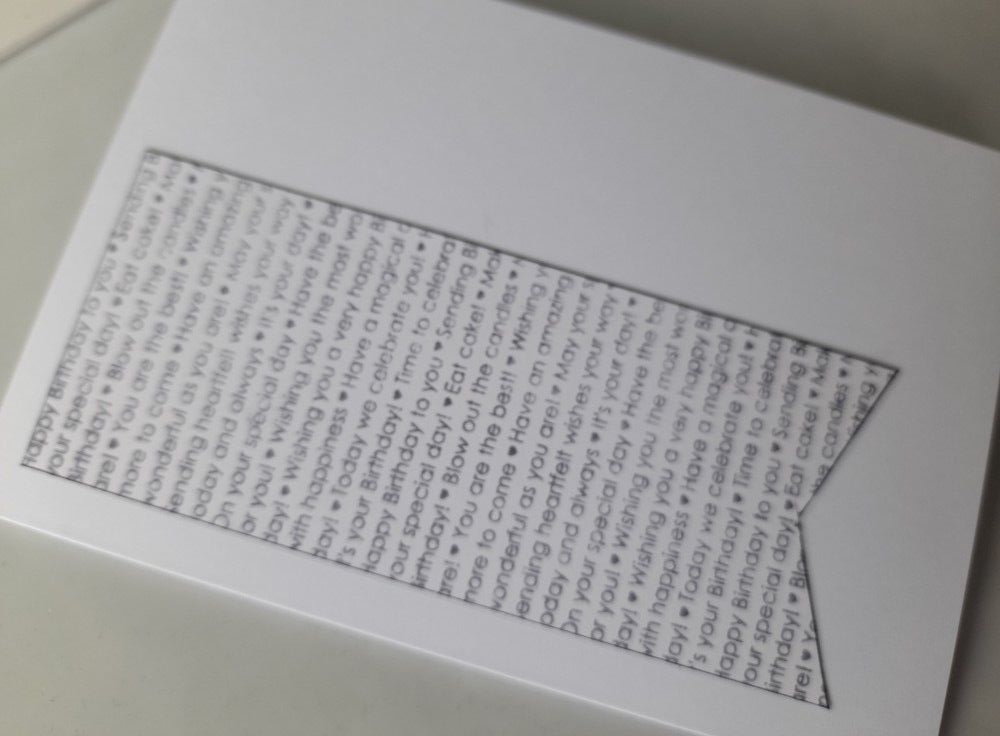 Happy Birthday to you ♥ Sending B
your special day! ♥ Eat cake! ♥ Ma
irthday! ♥ Blow out the candies ♥
are! ♥ You are the best! ♥ Wishing y
more to come ♥ Have an amazing
wonderful as you are! ♥ May your s
ending heartfelt wishes your way
oday and always ♥ It's your day! ♥
On your special day ♥ Have the be
or you! ♥ Wishing you the most wo
day! ♥ Wishing you a very happy B
with happiness ♥ Have a magical d
day! ♥ Today we celebrate you! ♥ H
t's your Birthday! ♥ Time to celebra
Happy Birthday to you ♥ Sending B
our special day! ♥ Eat cake! ♥ Ma
irthday! ♥ Blow out the candles ♥
are! ♥ You are the best! ♥ Wishing y
more to come ♥ Have an amazing
wonderful as you are! ♥ May your s
ending heartfelt wishes your way
oday and always ♥ It's your day! ♥
On your special day ♥ Have the be
or you! ♥ Wishing you the most wo
day! ♥ Wishing you a very happy B
with happiness ♥ Have a magical d
day! ♥ Today we celebrate you! ♥ H
t's your Birthday! ♥ Time to celebra
Happy Birthday to you ♥ Sending B
our special day! ♥ Eat cake! ♥ Ma
irthday! ♥ Blo he candles ♥
are! ♥ Yo ishing y